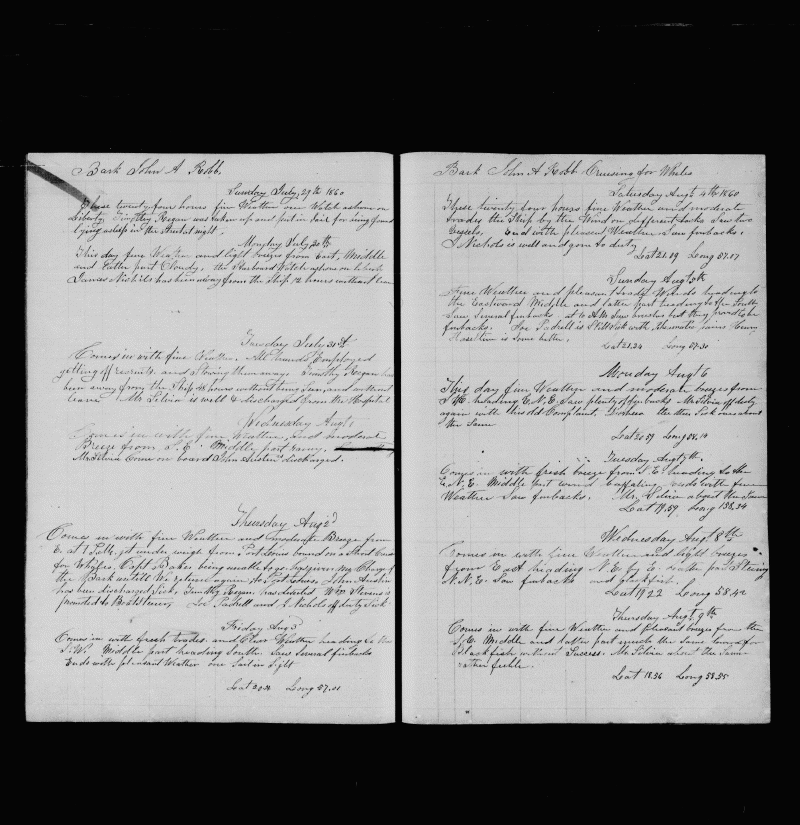 Bark John A Robb.
Sunday July, 29th 1860
These twenty four hours fine Weather one Watch ashore on
Liberty Timothy Regan was taken up and put in Jail for being found
lying asleep in the Street at night.
Monday July 30th
This day fine Weather and light breezes from East, Middle
and Latter part Cloudy, the Starboard Watch ashore on liberty
James Nichols has been away from the Ship 12 hours without leave
Tuesday July 31st
Comes in with fine Weather. All Hands Employed
getting off recruits and Stowing them away. Timothy Regan has
been away from the Ship 48 hours without being Seen, and without
leave Mr Silvia is well & discharged from the Hospital
Wednesday Augt 1
Comes in with fine Weather, and moderate
Breeze from S.E. Middle part rainy.
Mr Silvia Come on board John Austin discharged.
Thursday Aug 2d
Comes in with fine Weather and moderate Breeze from
E. at 1 P.M. got under weigh from Port Louis bound on a Short Cruise
for Whales, Capt Baker being unable to go has given me Charge of
the Bark untill We return again to Port Louis, John Austin
has been discharged Sick, Timothy Regan has deserted Wm Stevens is
promoted to Boatsteerer, Joe Padrell and J. Nichols off duty Sick
Friday Aug 3
Comes in with fresh trades and Clear Weather heading
S.W. Middle part heading South. Saw Several finbacks
Ends with pleasant Weather one Sail in Sight
Lat 20.54 Long 57.01
Bark John A Robb Cruising for Whales
Saturday Augt 4th 1860
These twenty four hours fine Weather and moderate
trades the Ship by the Wind on different tacks Saw two
Vessels. Ends with pleasant Weather Saw finbacks.
J Nichols is well and gone to duty
Lat 21.19 Long 57.17
Sunday Aug 5th
Fine Weather and pleasant trade Winds heading to
the Eastward Middle and latter part heading to the South
Saw Several finbacks at 10 A.M. Saw breaches but they proved to be
finbacks. Joe Padrell is Still Sick with rheumatic pains Henry
Haselton is Some better.
Lat 21.24 Long 57.30
Monday Augt 6
This day fine Weather and moderate breezes from
S.E. heading E.N.E. Saw plenty of finbacks Mr Silvia off duty
again with his old Complaint. the other Sick ones about
the Same
Lat 20.59 Long 58.14
Tuesday Augt 7th.
Comes in with fresh breeze from S.E. heading to the
E.N.E. Middle part wind baffling, ends with fine
Weather Saw finbacks. Mr. Silvia about the Same
Lat 19.59 Long 58,34
Wednesday Augt 8th
Comes in with fine Weather and light breezes
from E.S.E heading N.E. by E. latter part Steering
N.N.E. Saw finbacks and blackfish.
Lat 19 22 Long 58.42
Thursday Augt 9th
Comes in with fine Weather and pleasant breezes from the
S.E. Middle and latter part much the Same lowered for
Blackfish without Success. Mr Silvia about the Same
rather feeble.
Lat 18.56 Long 58.55